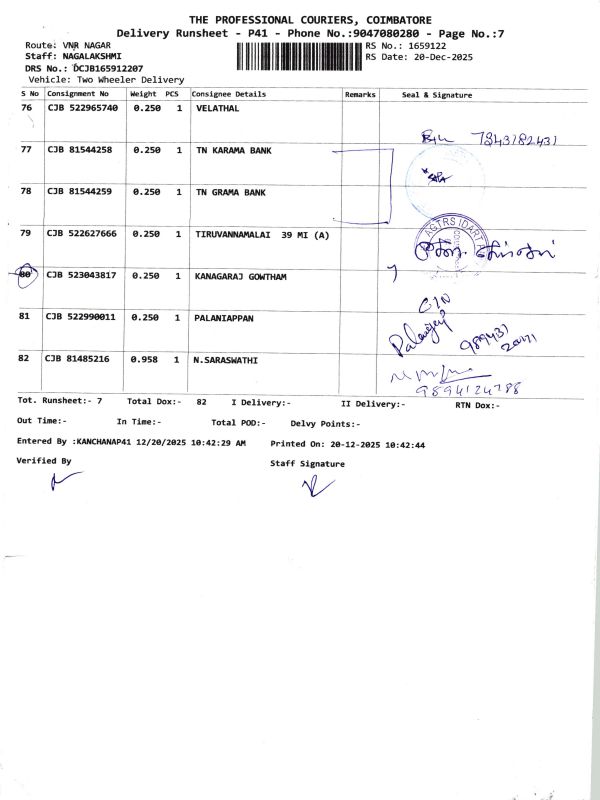 THE PROFESSIONAL COURIERS, COIMBATORE
Delivery Runsheet - P41 - Phone No.:9047080280 - Page No.:7
Route: VNR NAGAR
RS No.: 1659122
Staff: NAGALAKSHMI
RS Date: 20-Dec-2025
DRS No.: DCJB165912207
Vehicle: Two Wheeler Delivery
S No Consignment No Weight PCS Consignee Details Remarks Seal & Signature
76 CJB 522965740 0.250 1 VELATHAL
7343182431
77 CJB 81544258 0.250 1 TN KARAMA BANK
78 CJB 81544259 0.250 1 TN GRAMA BANK
79 CJB 522627666 0.250 1 TIRUVANNAMALAI 39 MI (A)
80 CJB 523043817 0.250 1 KANAGARAJ GOWTHAM
81 CJB 522990011 0.250 1 PALANIAPPAN
82 CJB 81485216 0.958 1 N.SARASWATHI
9894124788
Tot. Runsheet:- 7 Total Dox:- 82 I Delivery:- II Delivery:- RTN Dox:-
Out Time:- In Time:- Total POD:- Delvy Points:-
Entered By :KANCHANAP41 12/20/2025 10:42:29 AM Printed On: 20-12-2025 10:42:44
Verified By Staff Signature